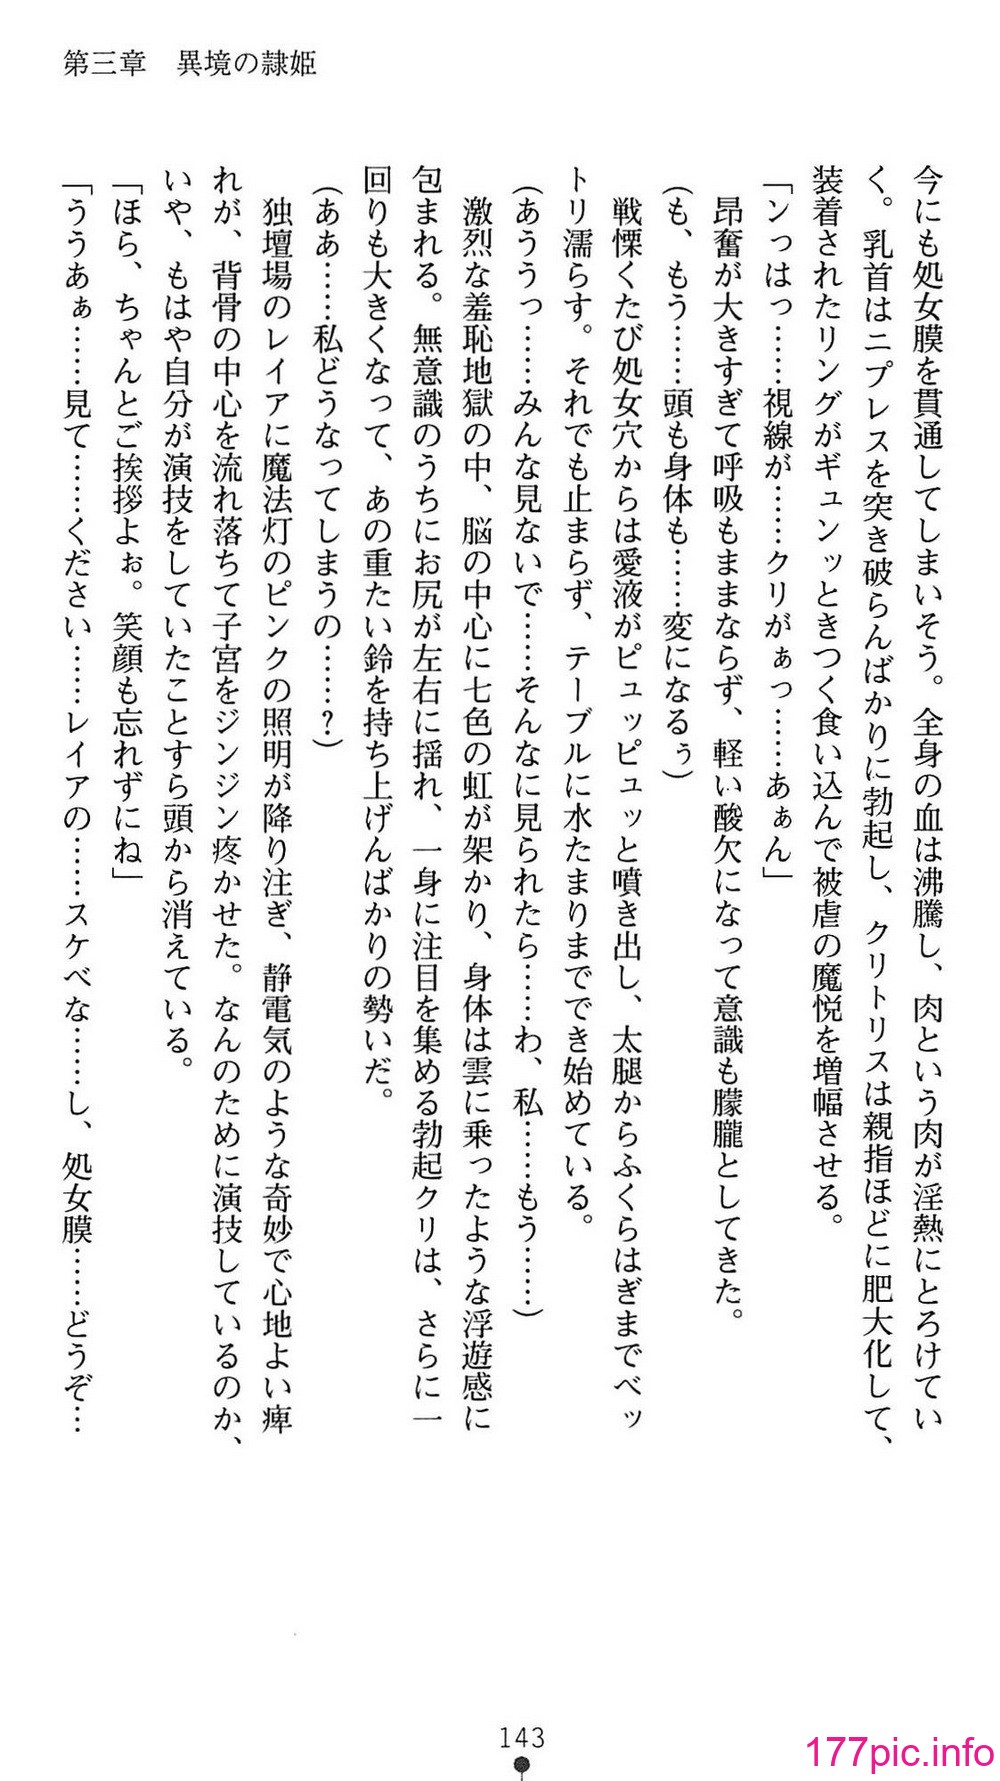 第三章　異境の隷姫
今にも処女膜を貫通してしまいそう。全身の血は沸騰し、肉という肉が淫熱にとろけてい
く。乳首はニプレスを突き破らんばかりに勃起し、クリトリスは親指ほどに肥大化して、
装着されたリングがギュンッときつく食い込んで被虐の魔悦を増幅させる。
「ンっはっ……視線が……クリがぁっ……あぁん」
　昂奮が大きすぎて呼吸もままならず、軽い酸欠になって意識も朦朧としてきた。
(も、もう……頭も身体も……変になるぅ)
　戦慄くたび処女穴からは愛液がピュッピュッと噴き出し、太腿からふくらはぎまでベッ
トリ濡らす。それでも止まらず、テーブルに水たまりまででき始めている。
(あううっ……みんな見ないで……そんなに見られたら……わ、私……もう……)
　激烈な羞恥地獄の中、脳の中心に七色の虹が架かり、身体は雲に乗ったような浮遊感に
包まれる。無意識のうちにお尻が左右に揺れ、一身に注目を集める勃起クリは、さらに一
回りも大きくなって、あの重たい鈴を持ち上げんばかりの勢いだ。
(ああ……私どうなってしまうの……？)
　独壇場のレイアに魔法灯のピンクの照明が降り注ぎ、静電気のような奇妙で心地よい痺
れが、背骨の中心を流れ落ちて子宮をジンジン疼かせた。なんのために演技しているのか、
いや、もはや自分が演技をしていたことすら頭から消えている。
「ほら、ちゃんとご挨拶よぉ。笑顔も忘れずにね」
「ううあぁ……見て……ください……レイアの……スケベな……し、処女膜……どうぞ…
143
177pic.info